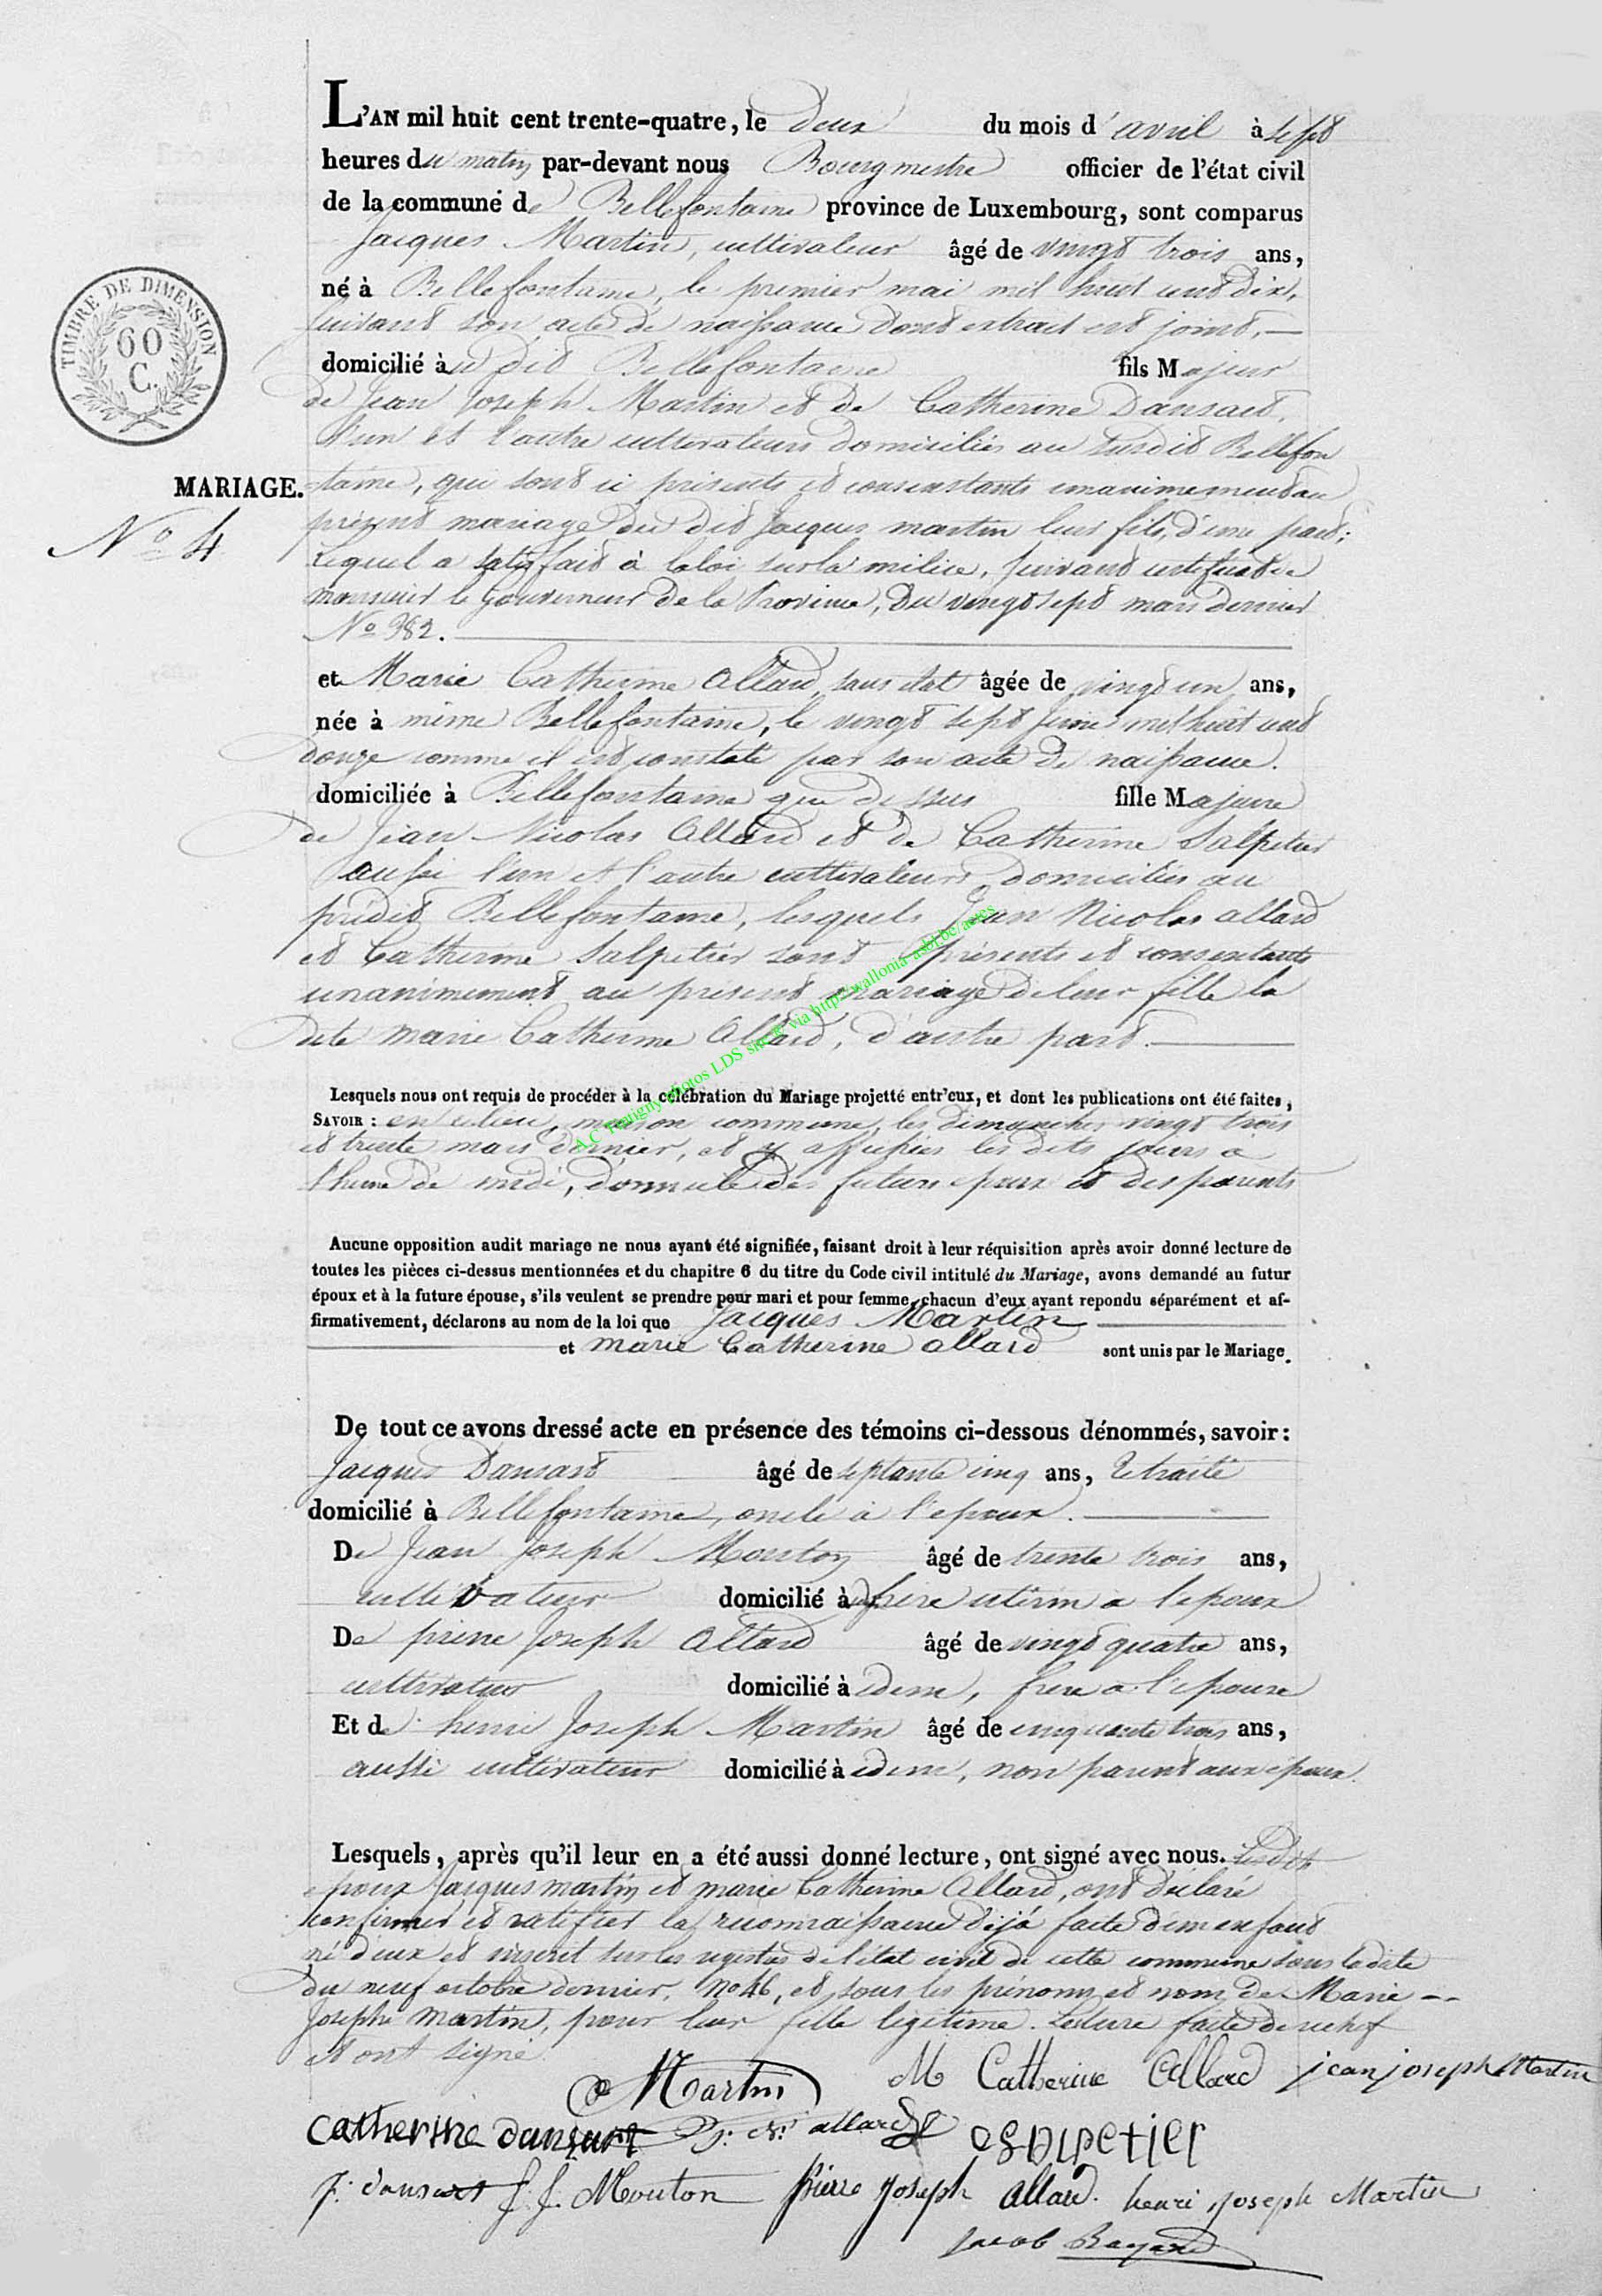 L'AN mil huit cent trente-quatre, le deux du mois d'avril à sept
heures du matin par-devant nous Bourgmestre officier de l'état civil
de la commune de Bellefontaine province de Luxembourg, sont comparus
Jacques Martin, cultivateur âgé de vingt trois ans,
né à Bellefontaine, le premier mai mil huit cent dix,
suivant son acte de naissance dont extrait est joint,
TIMBRE DE DIMENSION
60
C.
domicilié au dit Bellefontaine fils Majeur
de Jean Joseph Martin et de Catherine Dansart,
l'un et l'autre cultivateurs domiciliés au susdit Bellefon
MARIAGE.
taine, qui sont ici présents et consentants unanimement au
N° 4
présent mariage du dit Jacques martin leur fils, d'une part;
Lequel a satisfait à la loi sur la milice, suivant certificat de
monsieur le Gouverneur de la Province, du vingt sept mars dernier
N° 382.
et Marie Catherine Allard, sans état âgée de vingt un ans,
née à même Bellefontaine, le vingt sept juin mil huit cent
douze comme il est constaté par son acte de naissance.
domiciliée à Bellefontaine que dessus fille Majeure
de Jean Nicolas Allard et de Catherine Salpetier
aussi l'un et l'autre cultivateurs domiciliés au
prédit Bellefontaine, lesquels Jean Nicolas allard
et Catherine Salpetier sont présents et consentants
unanimement au présent mariage de leur fille la
dite marie Catherine Allard, d'autre part.
A.C Tintigny photos LDS via http://wallonia-asbl.be/actes
Lesquels nous ont requis de procéder à la célébration du Mariage projetté entr'eux, et dont les publications ont été faites,
SAVOIR : en ce lieu, maison commune, les dimanches vingt trois
et trente mars dernier, et y affichées les dits jours à
l'heure de midi, domicile des futurs epoux et des parents
Aucune opposition audit mariage ne nous ayant été signifiée, faisant droit à leur réquisition après avoir donné lecture de
toutes les pièces ci-dessus mentionnées et du chapitre 6 du titre du Code civil intitulé du Mariage, avons demandé au futur
époux et à la future épouse, s'ils veulent se prendre pour mari et pour femme, chacun d'eux ayant repondu séparément et af-
firmativement, déclarons au nom de la loi que Jacques Martin
et marie Catherine allard sont unis par le Mariage.
De tout ce avons dressé acte en présence des témoins ci-dessous dénommés, savoir :
Jacques Dansart âgé de septante cinq ans, retraité
domicilié à Bellefontaine, oncle à l'epoux.
De Jean Joseph Mouton âgé de trente trois ans,
cultivateur domicilié à frère utérin à l'epoux
De pierre Joseph Allard âgé de vingt quatre ans,
cultivateur domicilié à idem, frere a l'epouse
Et de henri Joseph Martin âgé de cinquante trois ans,
aussi cultivateur domicilié à idem, non parent aux epoux.
Lesquels, après qu'il leur en a été aussi donné lecture, ont signé avec nous. Lesdits
epoux Jacques martin et marie Catherine Allard, ont déclaré
confirmer et ratifier la reconnaissance déjà faite d'un enfant
né d'eux et inscrit sur les registres de l'état civil de cette commune sous la date
du neuf octobre dernier, No 46, et sous les prénoms et nom de Marie --
Josephe Martin, pour leur fille légitime. Lecture faite derechef
et ont signé.
Martin M Catherine Allard jean joseph Martin
catherine dansart J. N. allard csalpetier
J. dansart J. J. Mouton pierre joseph allard. henri joseph Martin
Jacob